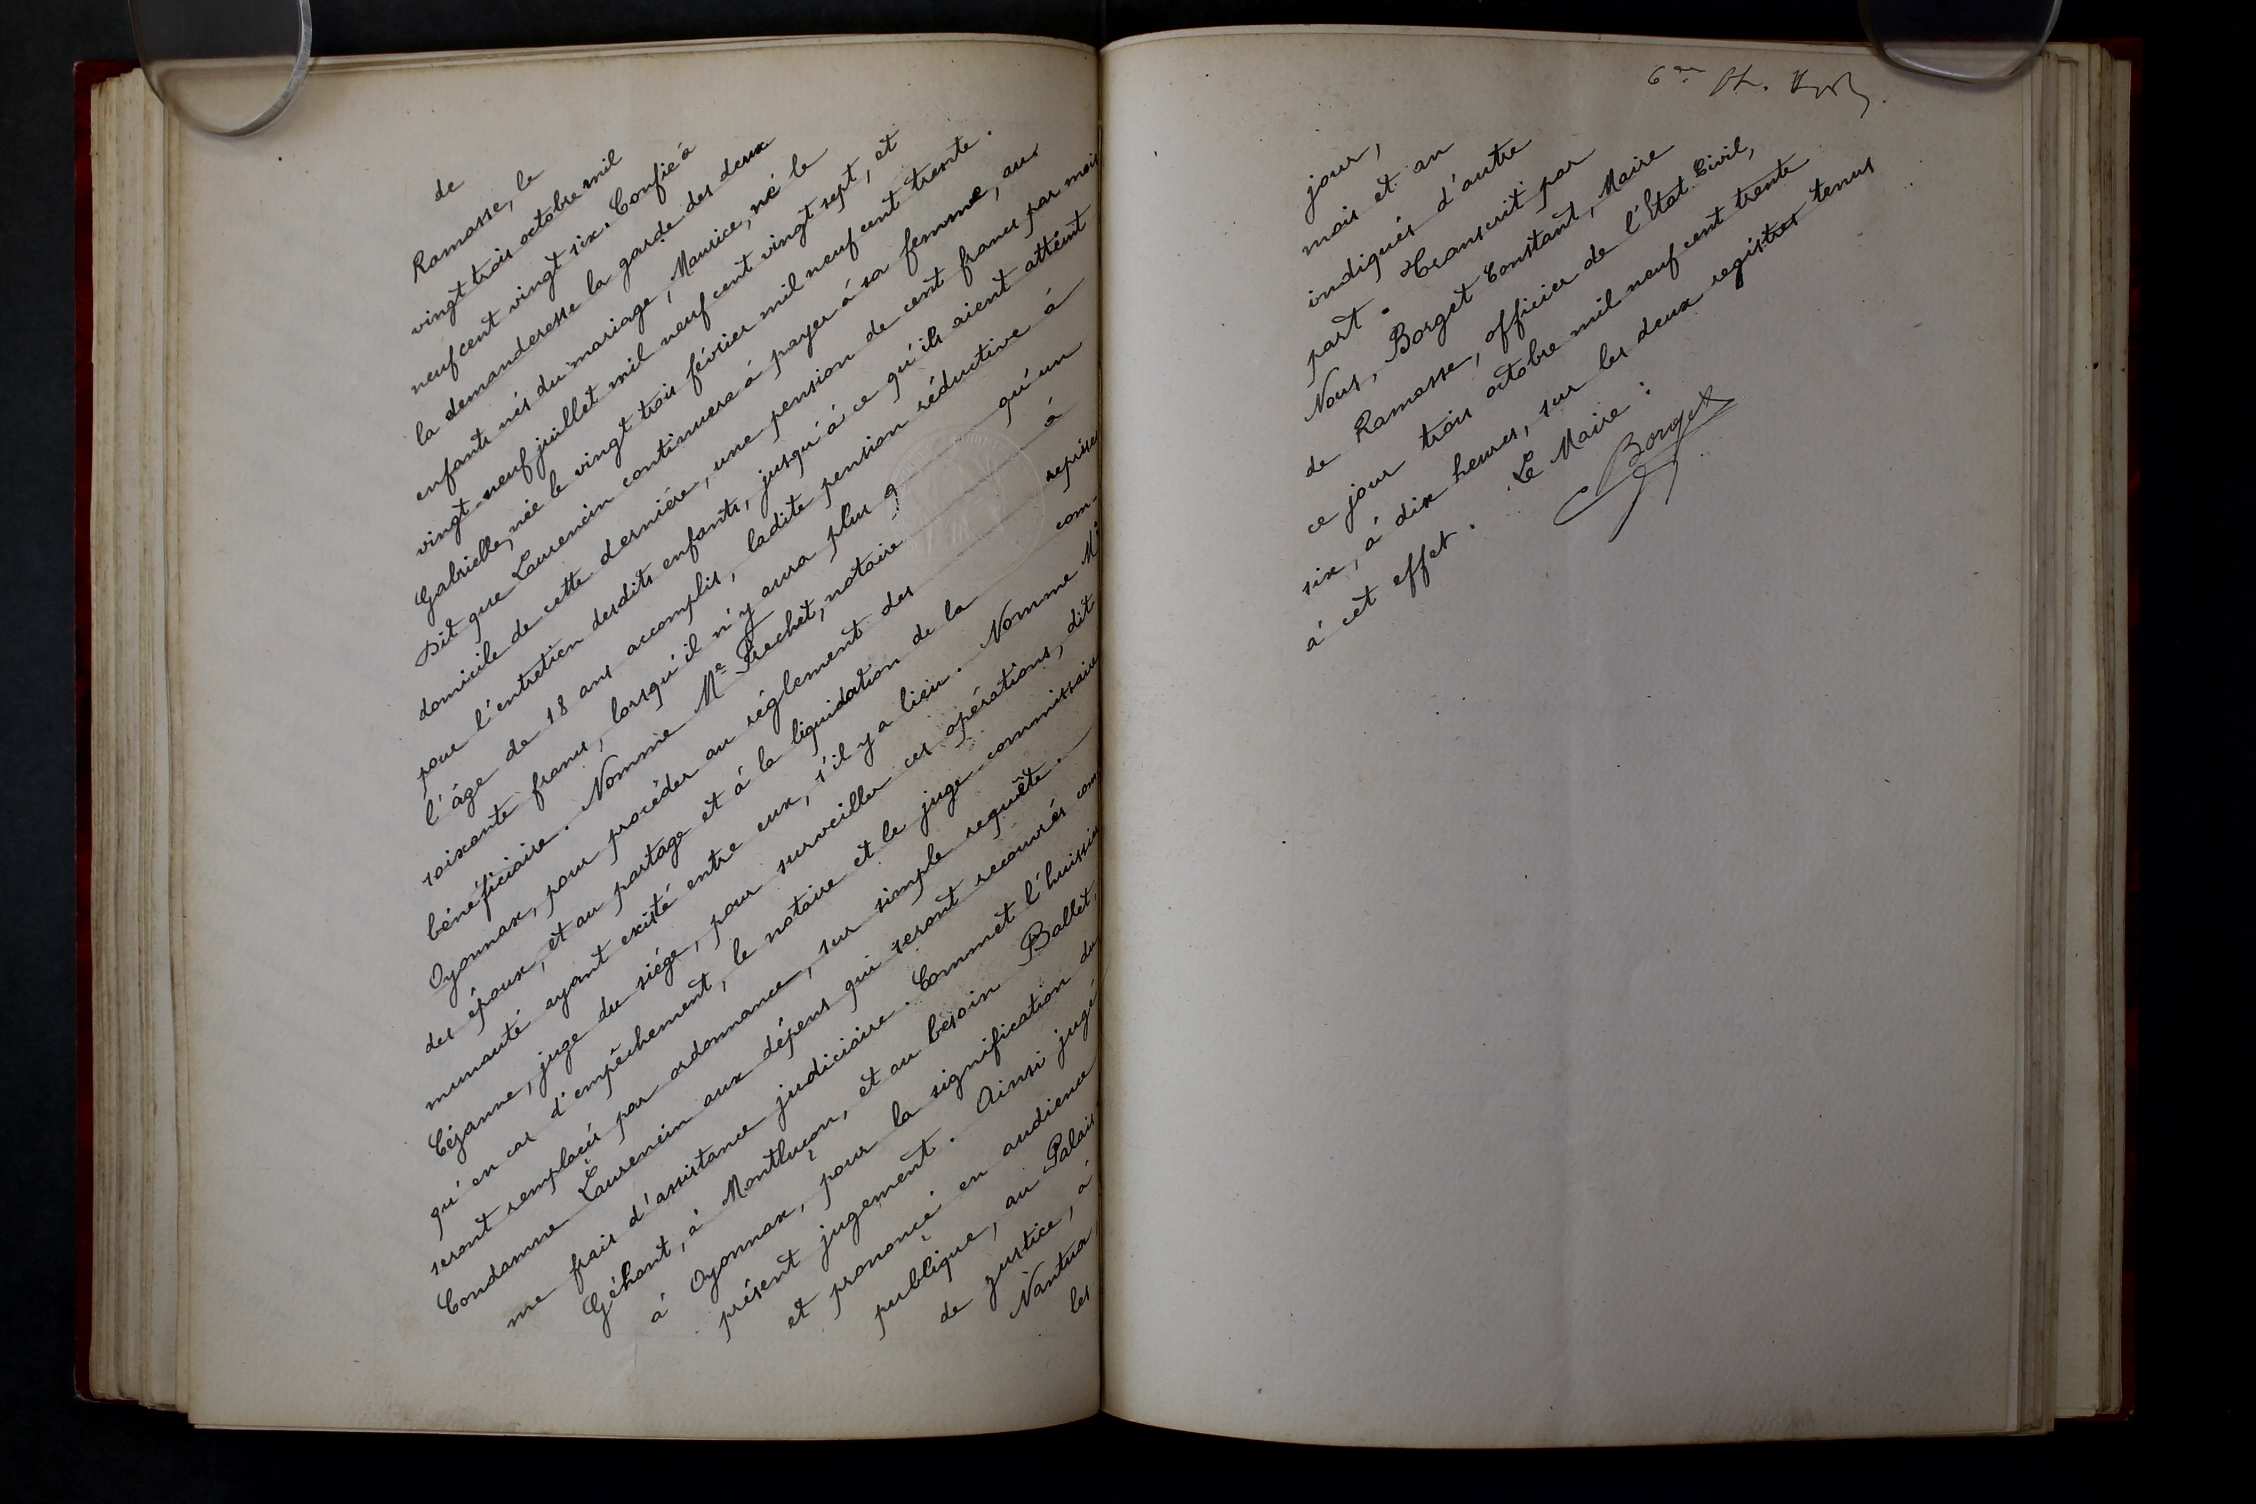 de
Ramasse, le
vingt trois octobre mil
neuf cent vingt six. Confie à
la demanderesse la garde des deux
enfants nés du mariage, Maurice, né le
vingt-neuf juillet mil neuf cent vingt sept, et
Gabrielle, née le vingt trois février mil neuf cent trente.
Dit que Laurencin continuera à payer à sa femme, au
domicile de cette dernière, une pension de cent francs par mois
pour l'entretien desdits enfants, jusqu'à ce qu'ils aient atteint
l'âge de 18 ans accomplis, ladite pension réductive à
soixante francs, lorsqu'il n'y aura plus q qu'un
bénéficiaire. Nomme Me Prechet, notaire à
Oyonnax, pour procéder au règlement des reprises
des époux, et au partage et à la liquidation de la com-
munauté ayant existé entre eux, s'il y a lieu. Nomme Mr
Cézanne, juge du siège, pour surveiller ces opérations, dit
qu'en cas d'empêchement, le notaire et le juge-commissaire
seront remplacés par ordonnance, sur simple requête.
Condamne Laurencin aux dépens qui seront recouvrés com
me frais d'assistance judiciaire. Commet l'huissier
Géhant, à Montluçon, et au besoin Ballet,
à Oyonnax, pour la signification du
présent jugement. Ainsi jugé
et prononcé en audience
publique, au Palais
de justice, à
Nantua,
les
6me
jour,
mois et an
indiqués d'autre
part. Transcrit par
Nous, Borget Constant, Maire
de Ramasse, officier de l'Etat Civil,
ce jour trois octobre mil neuf cent trente
six, à dix heures, sur les deux registres tenus
à cet effet. Le Maire :
Borget